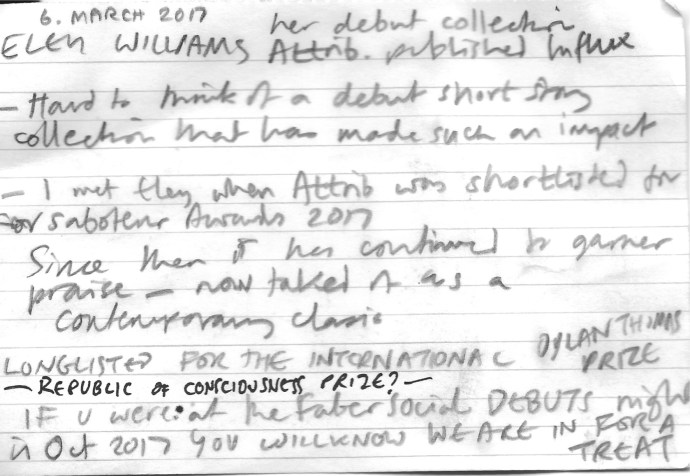 6. MARCH 2017
her debut collection
ELEY WILLIAMS Attrib. published Influx
– Hard to think of a debut short story
collection that has made such an impact
– I met Eley when Attrib was shortlisted for
for saboteur Awards 2017
Since then it has continued to garner
praise – now talked of as a
contemporary classic
LONGLISTED FOR THE INTERNATIONAL DYLAN THOMAS
PRIZE
– REPUBLIC OF CONSCIOUSNESS PRIZE? –
IF U were at the Faber Social DEBUTS night
in Oct 2017 YOU WILL KNOW WE ARE IN FOR A
TREAT